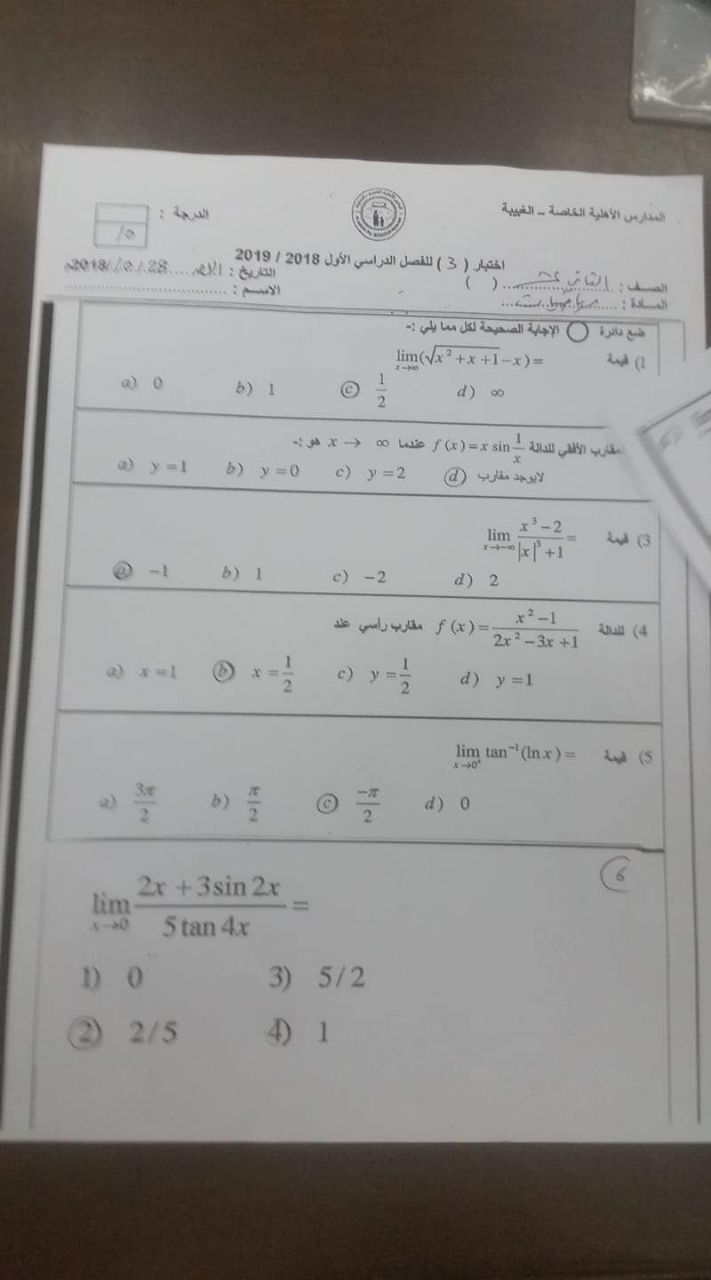 المدارس الأهلية الخاصة – الغبيبة
الدرجة :
10
اختبار ( 3 ) للفصل الدراسي الأول 2018 / 2019
الصف : ( )
التاريخ : 28 / 10 / 2018م
المادة :
الاسم :
ضع دائرة ◯ الإجابة الصحيحة لكل مما يلي :-
1) قيمة lim x→∞ (√(x² + x + 1) – x) =
a) 0 b) 1 c) 1/2 d) ∞
مقارب الأفقي للدالة f (x) = x sin 1/x عندما x → ∞ هو :-
a) y = 1 b) y = 0 c) y = 2 d) لايوجد مقارب
3) قيمة lim x→–∞ (x³ – 2)/(|x|³ + 1) =
a) –1 b) 1 c) –2 d) 2
4) للدالة f (x) = (x² – 1)/(2x² – 3x + 1) مقارب رأسي عند
a) x = 1 b) x = 1/2 c) y = 1/2 d) y = 1
5) قيمة lim x→0⁺ tan⁻¹(ln x) =
a) 3π/2 b) π/2 c) –π/2 d) 0
6
lim x→0 (2x + 3 sin 2x)/(5 tan 4x) =
1) 0 3) 5/2
2) 2/5 4) 1